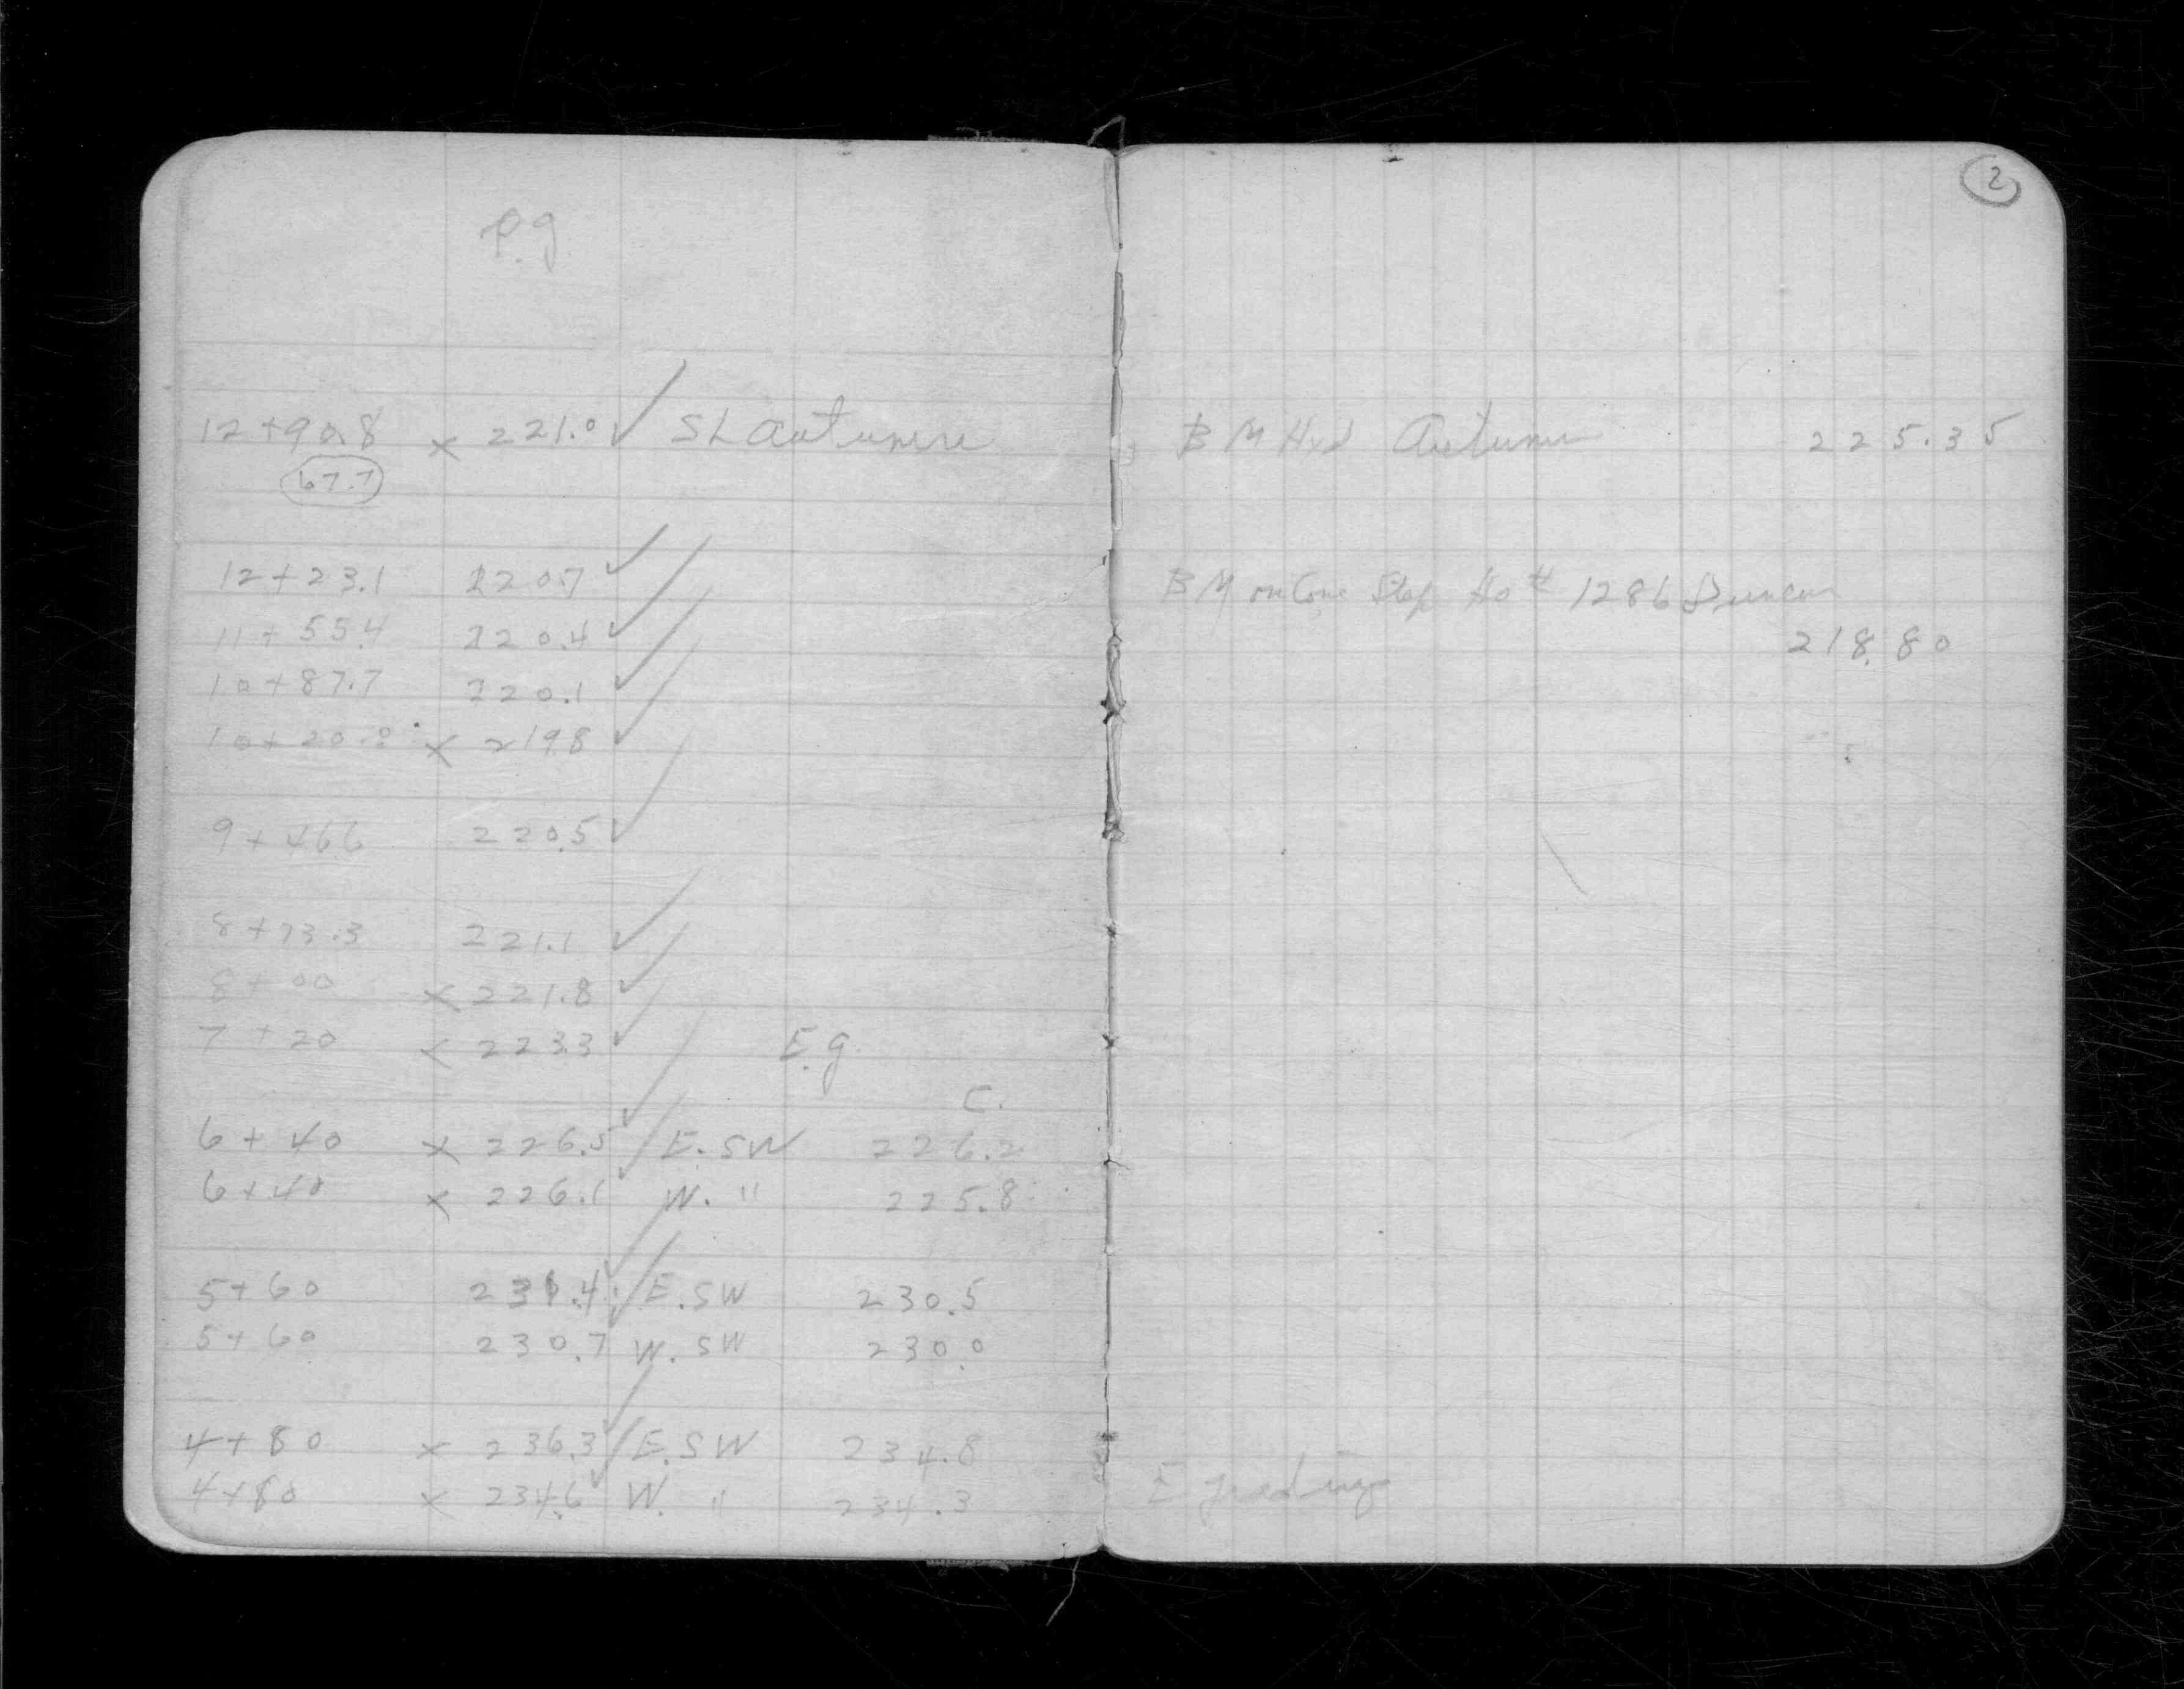 P.g
12+90.8 x 221.0 ✓ SL Autumn
67.7
12+23.1 220.7 ✓
11+55.4 220.4 ✓
10+87.7 220.1 ✓
10+20.0 x 219.8 ✓
9+46.6 220.5 ✓
8+73.3 221.1 ✓
8+00 x 221.8 ✓
7+20 x 223.3 ✓ E.g
C.
6+40 x 226.5 ✓ E. SW 226.2
6+40 x 226.1 ✓ W. " 225.8
5+60 231.4 ✓ E. SW 230.5
5+60 230.7 ✓ W. SW 230.0
4+80 x 236.3 ✓ E. SW 234.8
4+80 x 234.6 ✓ W. " 234.3
2
BM Hyd Autumn 225.35
BM on Conc Step Ho # 1286 Duncan
218.80
E grading